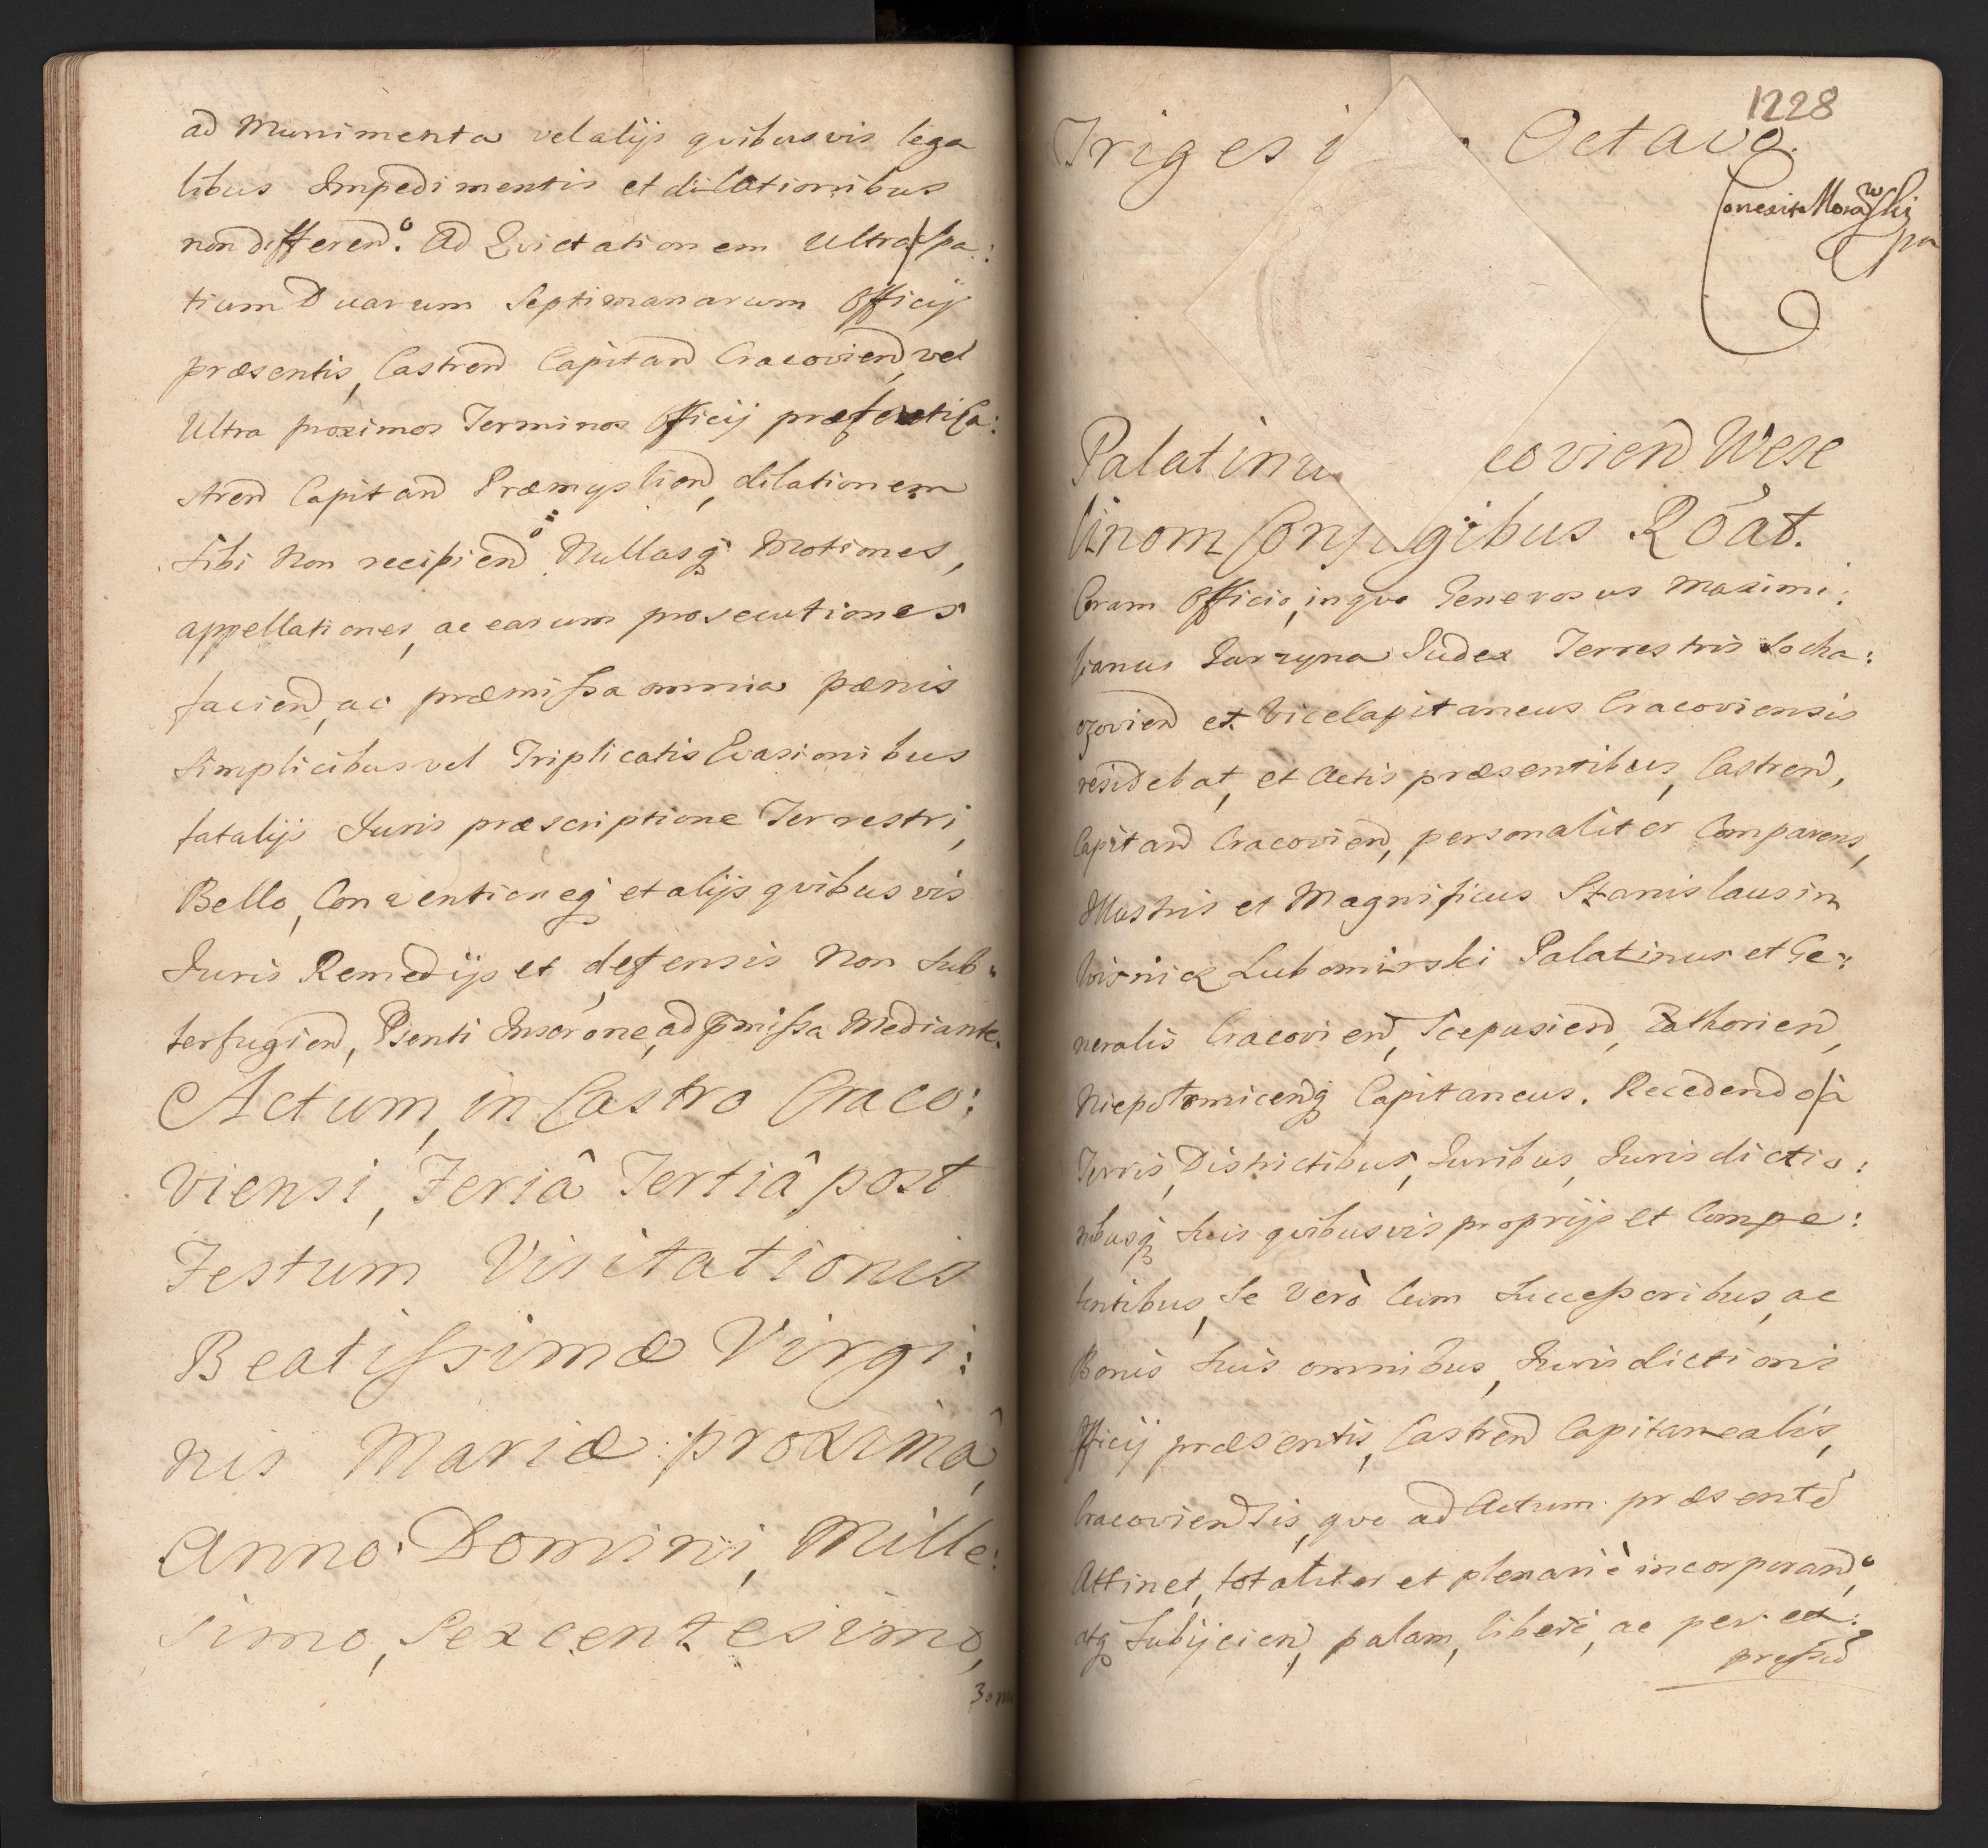 ad Munimenta vel alijs qvibusvis lega
libus Impedimentis et dilationibus
non differend⁰. Ad Evictationem Ultra spa:
tium Duarum Septimanarum Officij
præsentis, Castrend Capitand Cracoviend, vel
Ultra proximos Terminos Officij præfati Ca:
strend Capitand Præmysliend, dilationem
sibi Non recipiend⁰. Nullasq3 Motiones,
appellationes, ac earum prosecutiones
faciend, ac præmissa omnia pænis
simplicibus vel Triplicatis Evasionibus
fatalijs Juris præscriptione Terrestri,
Bello, Conventioneq3 et alijs qvibusvis
Juris Remedijs et defensis Non sub:
terfugiend, Psenti Inscrone, ad pmissa Mediante.
Actum, in Castro Craco:
viensi, Feriâ Tertiâ post
Festum Visitationis
Beatissimæ Virgi:
nis Mariæ proximâ,
Anno Domini, Mille:
simo, Sexcentesimo,
1228
Trigesi Octavo.
Palatinu coviend Wese
linom Conjugibus Róat.
Coram Officio, in qvo Generosus Maximi:
lianus Jarzyna Judex Terrestris Socha:
czoviend et Vicecapitaneus Cracoviensis
residebat, et Actis præsentibus, Castrend,
Capitand Cracoviend, personaliter Comparens,
Illustris et Magnificus Stanislaus in
Wisnicz Lubomirski Palatinus et Ge:
neralis Cracoviend, Scepusiend, Zathoriend,
Niepolomicendq3 Capitaneus. Recedendo à
Terris, Districtibus, Juribus, Jurisdictio:
nibusq3 suis qvibusvis proprijs et Compe:
tentibus, Se Verò Cum Successoribus, ac
Bonis suis omnibus, Jurisdictioni
Officij præsentis, Castrend Capitanealis,
Cracoviendsis, qvo ad Actum præsentē
Attinet, totaliter et plenariè incorporand⁰,
atq3 Subijciend, palam, liberè, ac per ex:
pressū